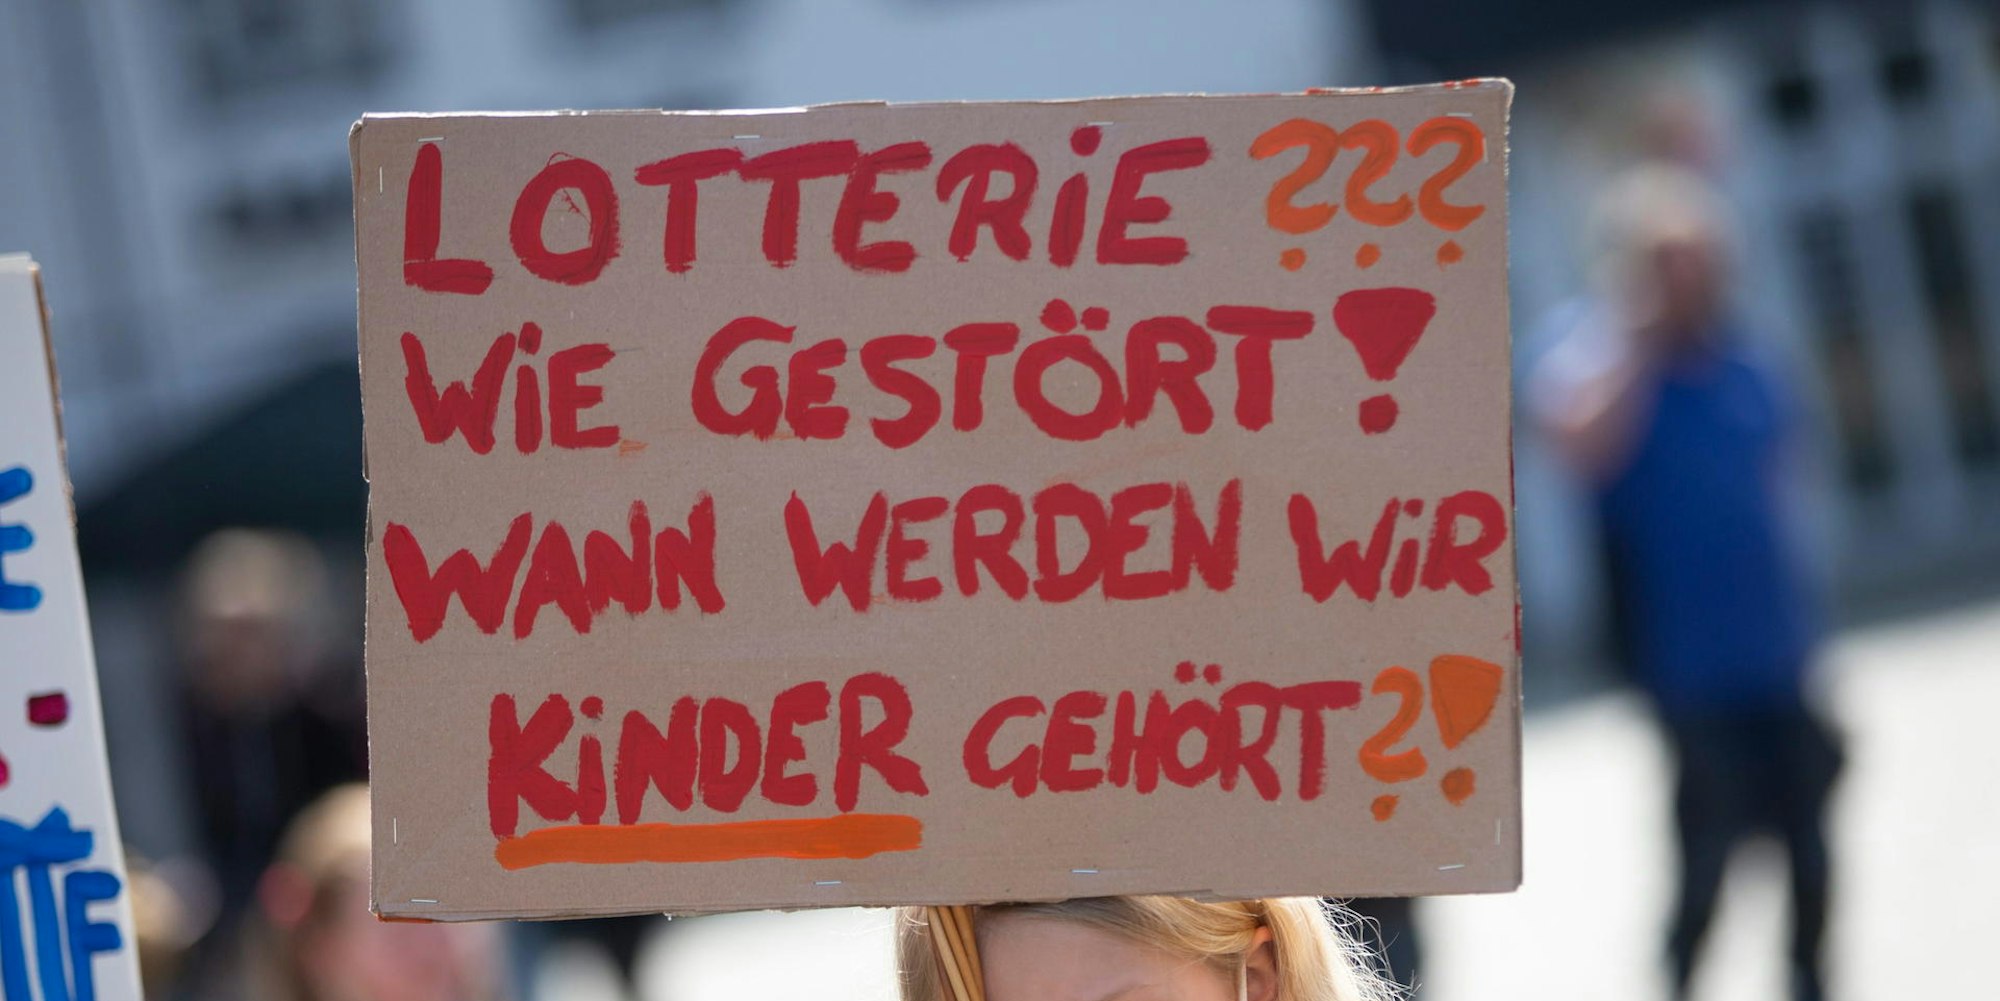 LOTTERiE ???
WiE GESTÖRT!
WANN WERDEN WiR
KiNDER GEHÖRT?!